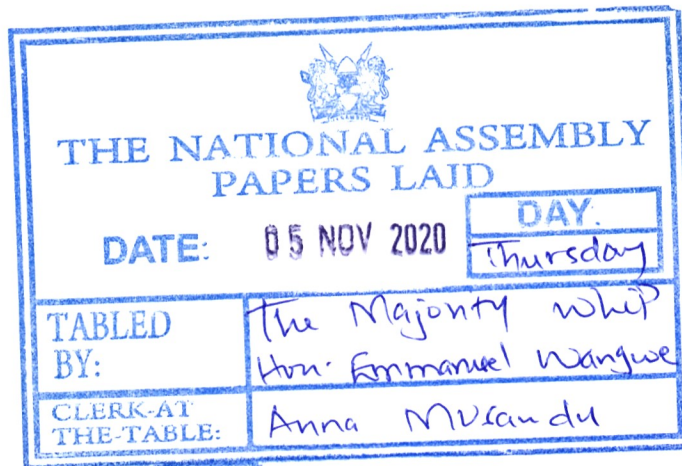 THE NATIONAL ASSEMBLY
PAPERS LAID
DATE: 05 NOV 2020
DAY:
Thursday
TABLED BY:
The Majority Whip
Hon. Emmanuel Wangwe
CLERK-AT THE-TABLE:
Anna Musandu